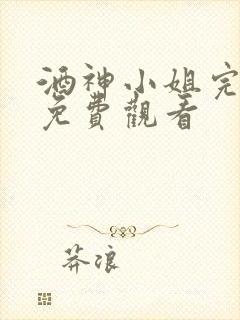 酒神小姐完
免費觀看
莽浪